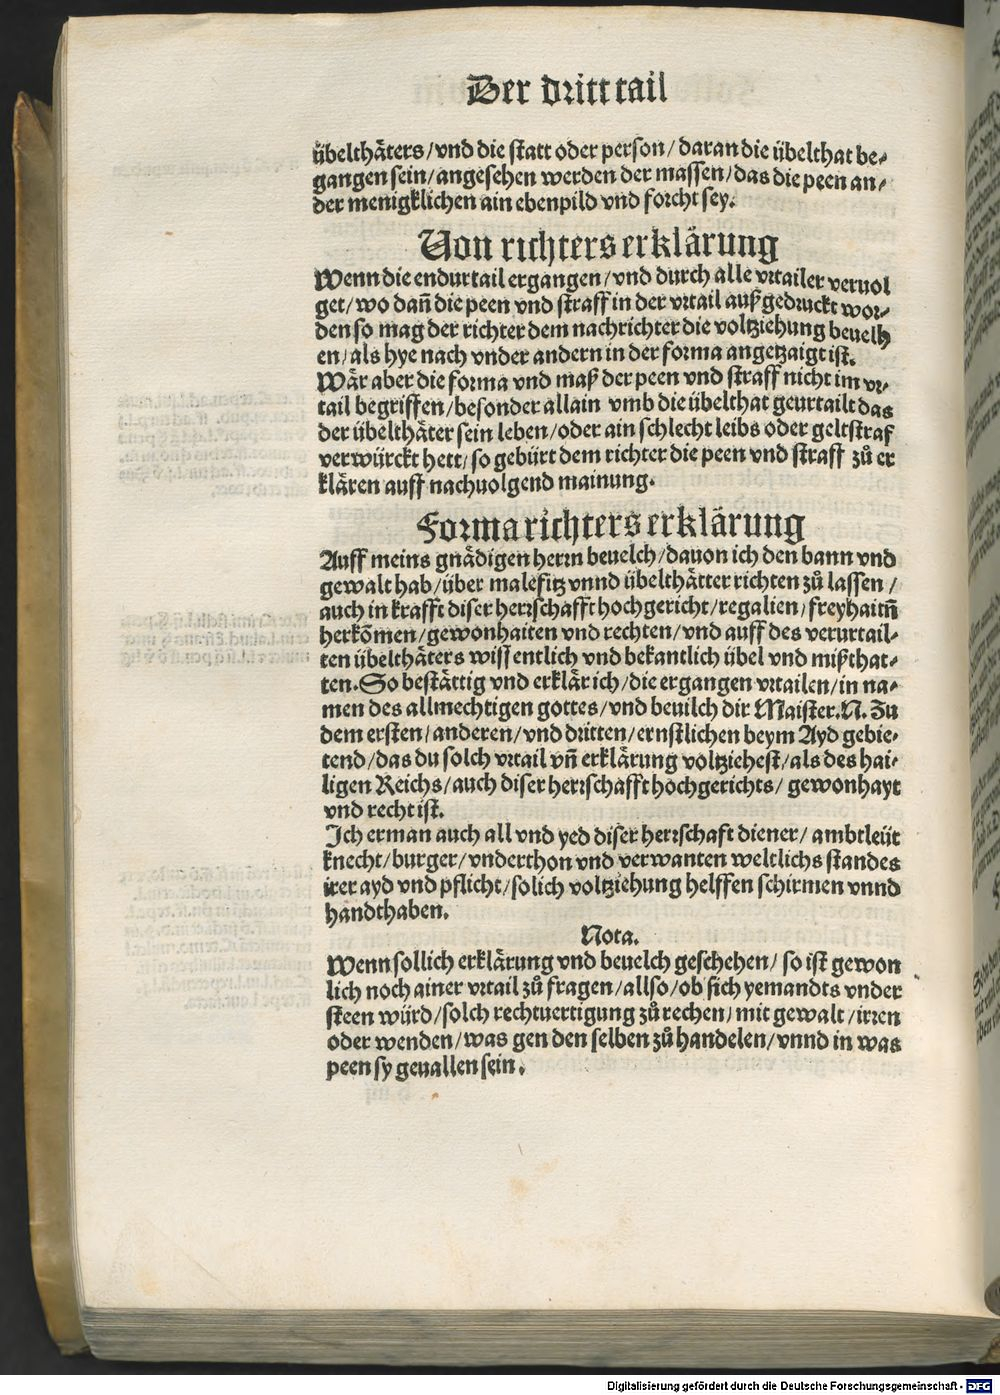 Der dritt tail
übelthäters/vnd die statt oder person/daran die übelthat be-
gangen sein/angesehen werden der massen/das die peen an-
der menigklichen ain ebenpild vnd forcht sey.
Von richters erklärung
Wenn die endurtail ergangen/vnd durch alle vrtailer veruol
get/wo dañ die peen vnd straff in der vrtail außgedruckt wor-
den so mag der richter dem nachrichter die voltziehung beuelh
en/als hye nach vnder andern in der forma angetzaigt ist.
Wär aber die forma vnd maß der peen vnd straff nicht im vr-
tail begriffen/besonder allain vmb die übelthat geurtailt das
der übelthäter sein leben/oder ain schlecht leibs oder geltstraf
verwürckt hett/so gebürt dem richter die peen vnd straff zů er
klären auff nachuolgend mainung.
Forma richters erklärung
Auff meins gnädigen herrn beuelch/dauon ich den bann vnd
gewalt hab/über malefitz vnnd übelthätter richten zů lassen/
auch in krafft diser herrschafft hochgericht/regalien/freyhaitñ
herkõmen/gewonhaiten vnd rechten/vnd auff des verurtail-
ten übelthäters wissentlich vnd bekantlich übel vnd mißthat-
ten. So bestättig vnd erklär ich/die ergangen vrtailen/in na-
men des allmechtigen gottes/vnd beuilch dir Maister. N. Zu
dem ersten/anderen/vnd dritten/ernstlichen beym Ayd gebie-
tend/das du solch vrtail vñ erklärung voltziehest/als des hai-
ligen Reichs/auch diser herrschafft hochgerichts/gewonhayt
vnd recht ist.
Ich erman auch all vnd yed diser herrschaft diener/ambtleüt
knecht/burger/vnderthon vnd verwanten weltlichs standes
irer ayd vnd pflicht/solich voltziehung helffen schirmen vnnd
handthaben.
Nota.
Wenn sollich erklärung vnd beuelch geschehen/so ist gewon
lich noch ainer vrtail zů fragen/allso/ob sich yemandts vnder
steen würd/solch rechtuertigung zů rechen/mit gewalt/irren
oder wenden/was gen den selben zů handelen/vnnd in was
peen sy geuallen sein.
Digitalisierung gefördert durch die Deutsche Forschungsgemeinschaft - DFG